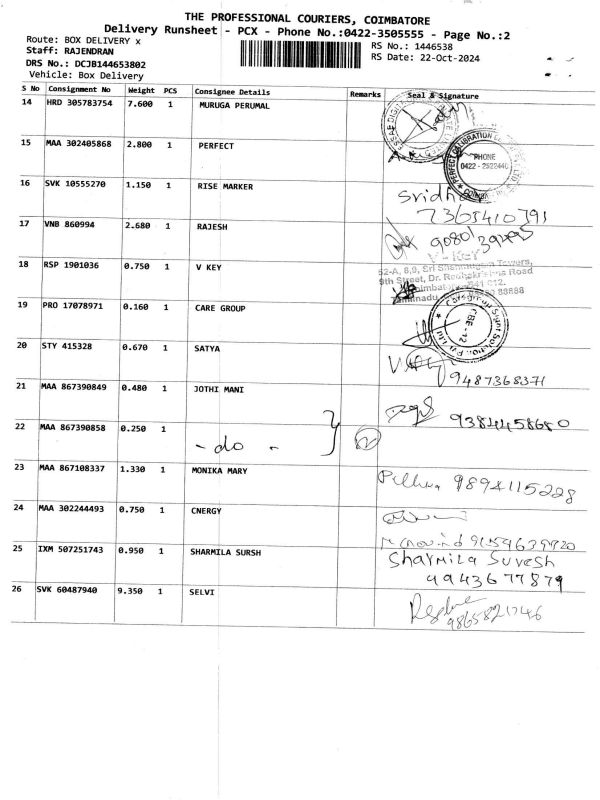 THE PROFESSIONAL COURIERS, COIMBATORE
Delivery Runsheet - PCX - Phone No.:0422-3505555 - Page No.:2
Route: BOX DELIVERY x
RS No.: 1446538
Staff: RAJENDRAN
RS Date: 22-Oct-2024
DRS No.: DCJB144653802
Vehicle: Box Delivery
S No Consignment No Weight PCS Consignee Details Remarks Seal & Signature
14 HRD 305783754 7.600 1 MURUGA PERUMAL
15 MAA 302405868 2.800 1 PERFECT
PERFECT CALIBRATION
PHONE
0422 -
16 SVK 10555270 1.150 1 RISE MARKER
Sridha
7363410791
17 VNB 860994 2.680 1 RAJESH
18 RSP 1901036 0.750 1 V KEY
V - KEY
52-A, Sri Shanmugam Towers,
9th Street, Dr. Radhakrishna Road
19 PRO 17078971 0.160 1 CARE GROUP
Caregroup Sight Solution Pvt Ltd
CBE-12
20 STY 415328 0.670 1 SATYA
9487368371
21 MAA 867390849 0.480 1 JOTHI MANI
9384458680
22 MAA 867390858 0.250 1
- do -
23 MAA 867108337 1.330 1 MONIKA MARY
9894115228
24 MAA 302244493 0.750 1 CNERGY
25 IXM 507251743 0.950 1 SHARMILA SURSH
Sharmila Suresh
9943677879
26 SVK 60487940 9.350 1 SELVI